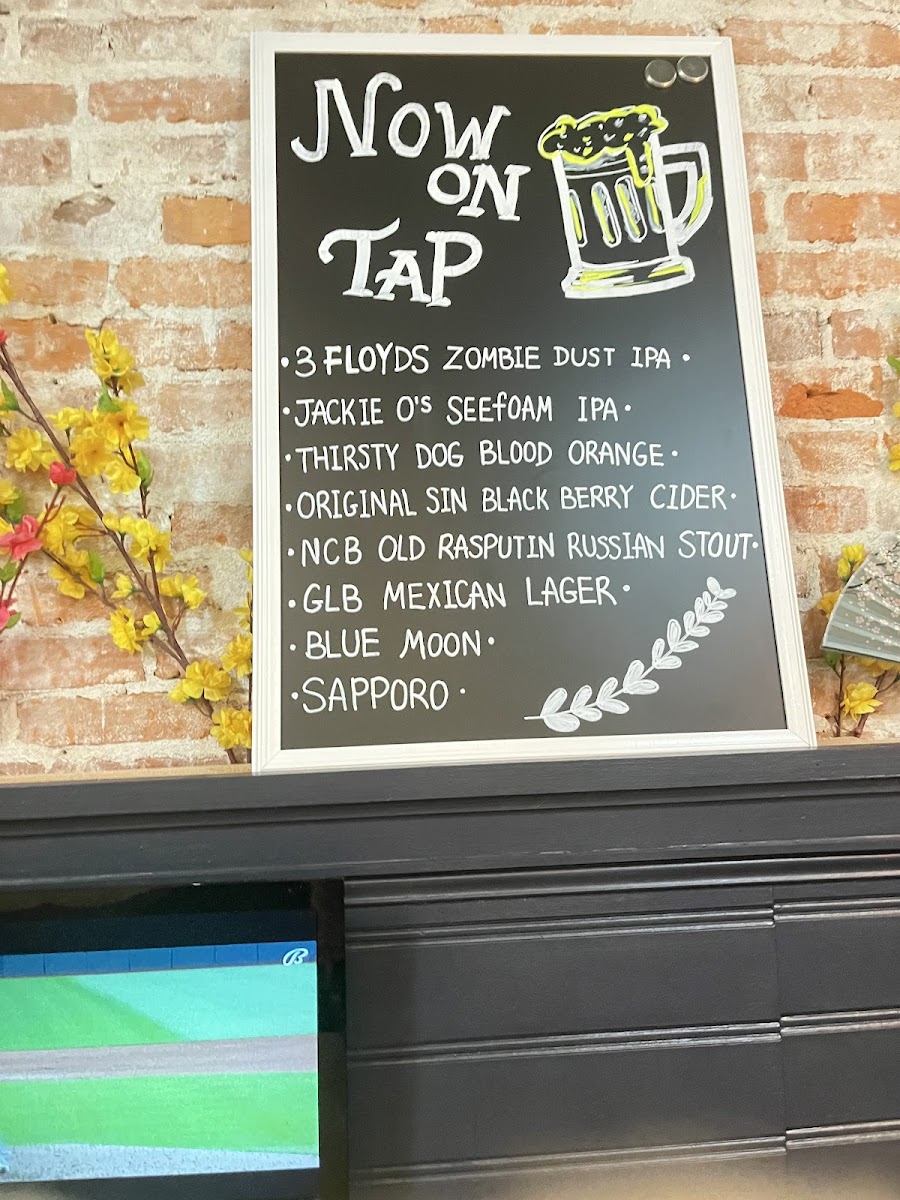 NOW
ON
TAP
·3 FLOYDS ZOMBIE DUST IPA·
·JACKIE O's SEEfOAM IPA·
·THIRSTY DOG BLOOD ORANGE·
·ORIGINAL SIN BLACK BERRY CIDER·
·NCB OLD RASPUTIN RUSSIAN STOUT·
·GLB MEXICAN LAGER·
·BLUE MOON·
·SAPPORO·
B